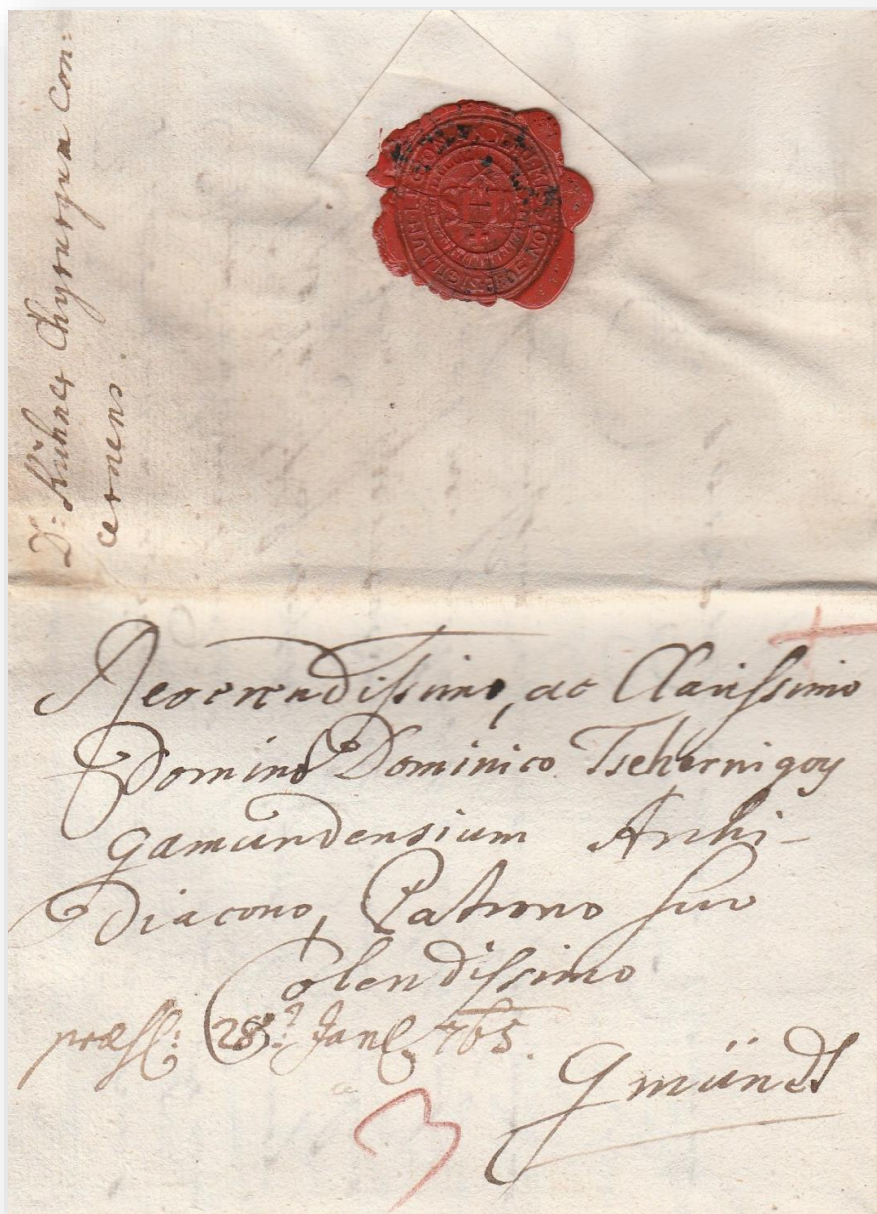 D: Kühner Chyrurgum con:
cernens.
Reverendissimo, ac Clarissimo
Domino Dominico Tschernigoy
Gamundensium Archi-
Diacono, Patrono suo
Colendissimo
præs: 28. Jan. 765.
Gmündt
3